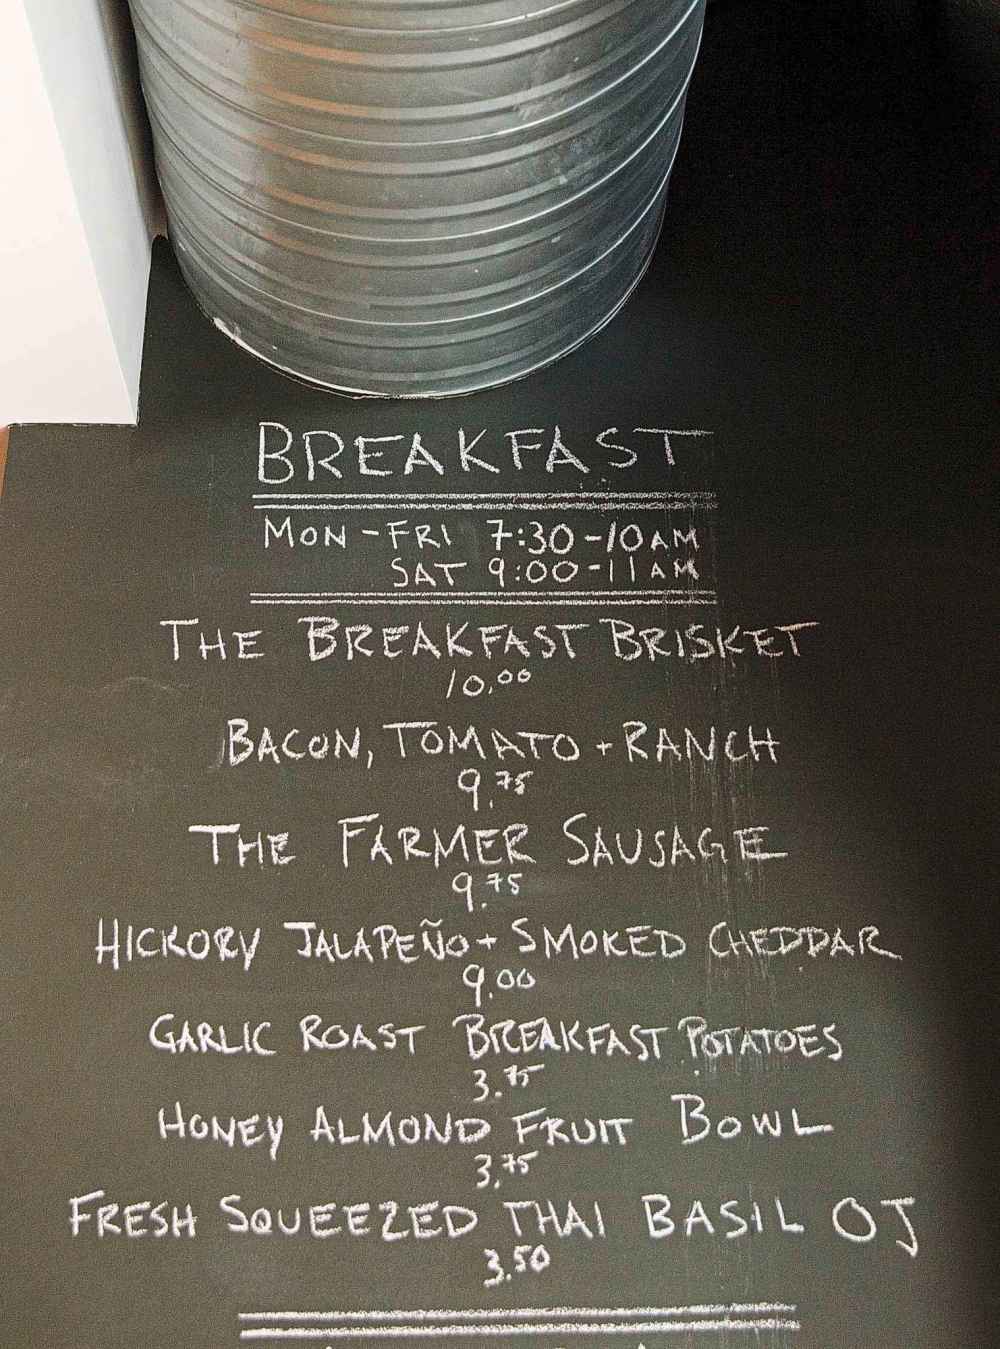 BREAKFAST
MON-FRI 7:30-10AM
SAT 9:00-11AM
THE BREAKFAST BRISKET
10.00
BACON, TOMATO + RANCH
9.75
THE FARMER SAUSAGE
9.75
HICKORY JALAPEÑO + SMOKED CHEDDAR
9.00
GARLIC ROAST BREAKFAST POTATOES
3.75
HONEY ALMOND FRUIT BOWL
3.75
FRESH SQUEEZED THAI BASIL OJ
3.50